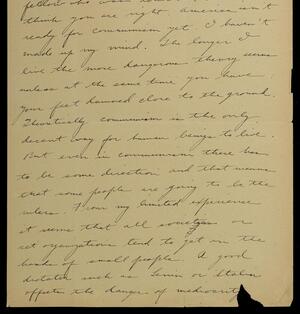 think you are right America isn't
ready for communism yet I haven't
made up my mind. The longer I
live the more dangerous theory seems
unless at the same time you have
your feet damned close to the ground.
Theoretically communism is the only
decent way for human beings to live.
But even in communism there has
to be some direction and that means
that some people are going to be the
rulers. From my limited experience
it seems that all societies or
set organizations tend to get in the
hands of small people. A good
dictator such as Lenin or Stalin
offsets the danger of mediocrity